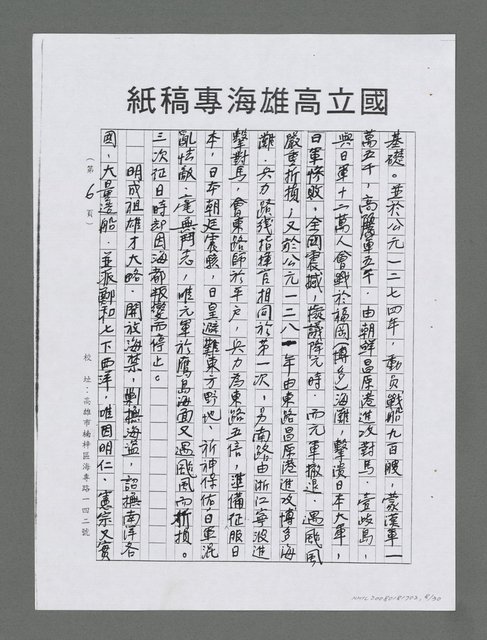 國立高雄海專稿紙
基礎。並於公元一二七四年，動員戰船九百艘，蒙漢軍一
萬五千，高麗軍五千，由朝鮮昌原港進攻對馬．壹歧島，
與日軍十二萬人會戰於福岡(博多)海灘，擊潰日本大軍，
日軍慘敗，全國震撼，擬議降元時．而元軍撤退．遇颱風
嚴重折損，又於公元一二八一年由東路昌原港進攻博多海
灘．兵力路線指揮官相同於第一次，另南路由浙江寧波進
擊對馬，會東路師於平戶，兵力為東路五倍，準備征服日
本，日本朝廷震駭，日皇避難東方野地，祈神保佑日軍混
亂怯敵．毫無鬥志，唯元軍於鷹島海面又遇颱風而折損。
三次征日時卻因海都叛變而停止。
明成祖雄才大略．開放海禁，剿撫海盜，詔撫南洋各
國，大量造船．並派鄭和七下西洋，唯因明仁．憲宗又實
（第 6 頁）
校 址：高雄市楠梓區海專路一四二號
NMTL20080181702, 6/30